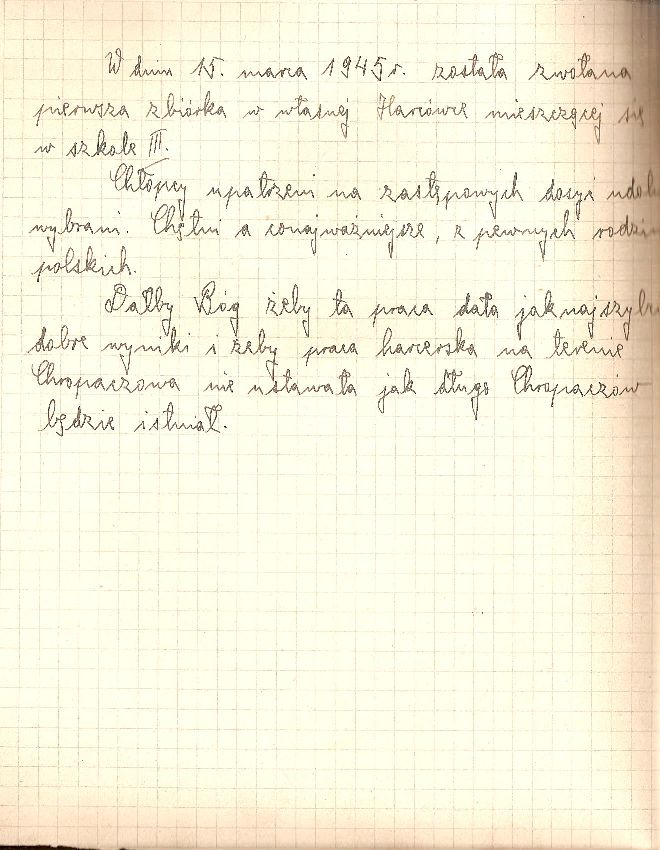 W dniu 15. marca 1945r. została zwołana
pierwsza zbiórka w własnej Harcówce mieszczącej się
w szkole III.
Chłopcy upatrzeni na zastępowych dosyć
wybrani. Chętni a conajważniejsze, z pewnych rodzin
polskich.
Dałby Bóg żeby ta praca dała
dobre wyniki i żeby praca harcerska na terenie
Chropaczowa nie ustawała jak długo Chropaczów
będzie istniał.